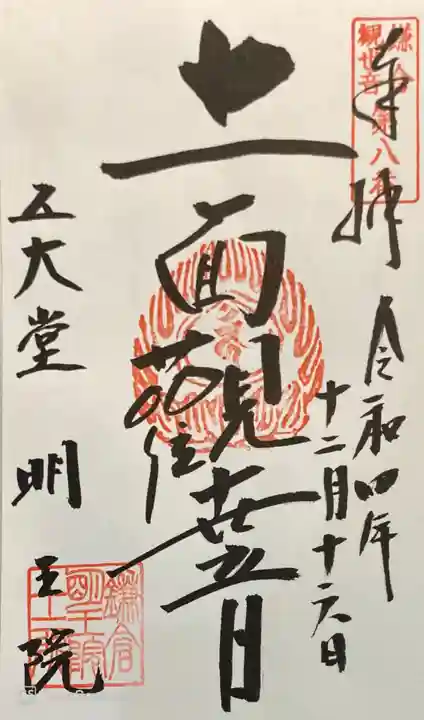 鎌倉
観世音第八番
奉拝
令和四年
十二月十六日
十一面観世音
五大堂
明王院
鎌倉
明王院